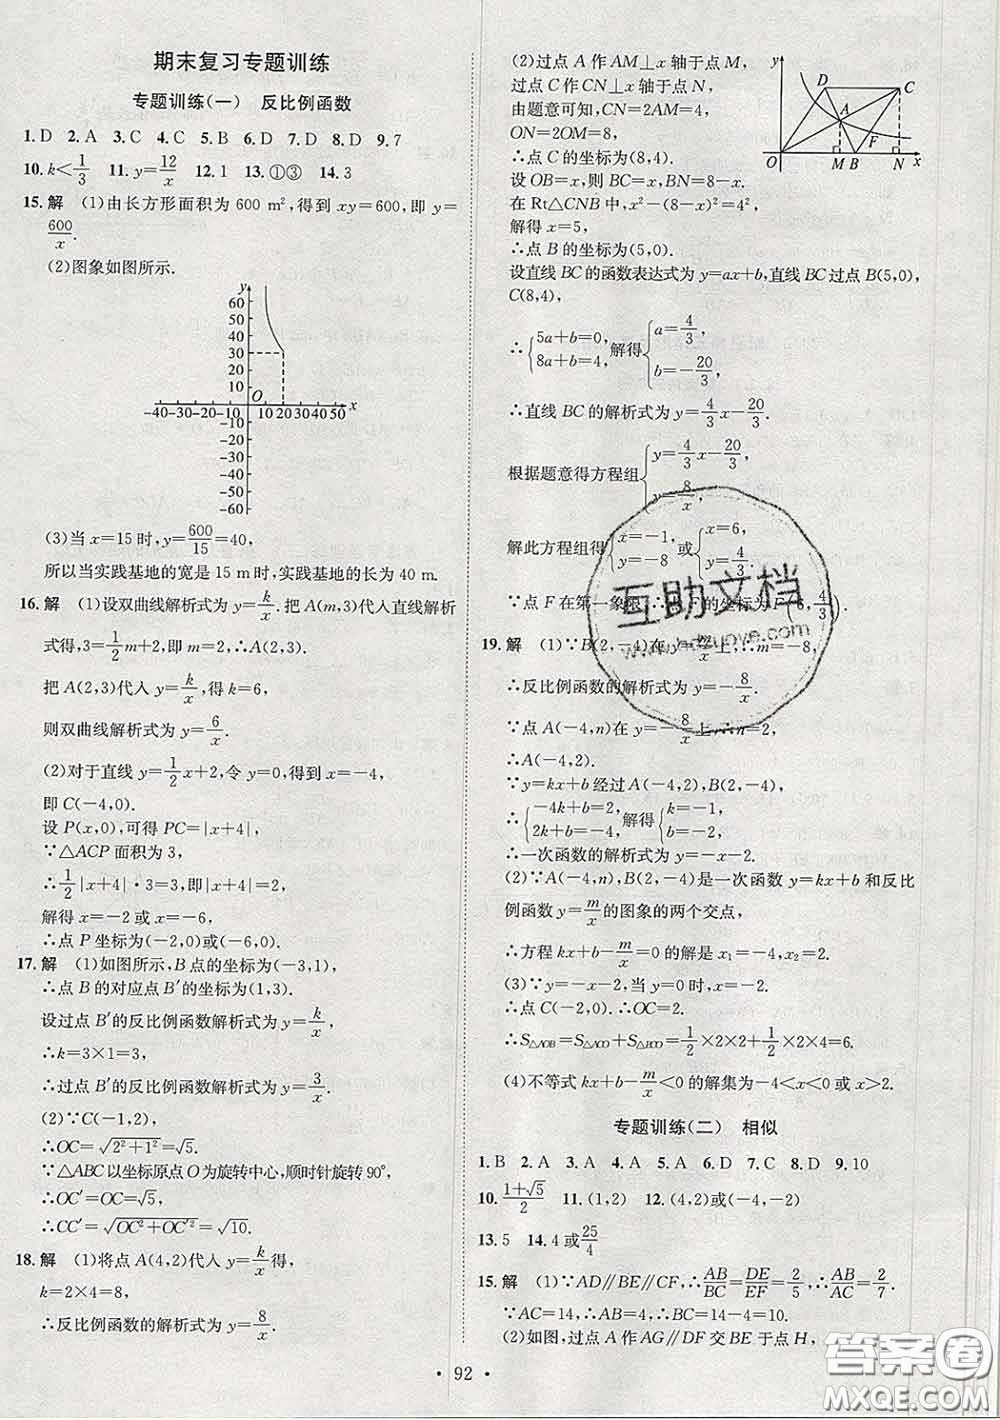 期末复习专题训练
专题训练(一)　反比例函数
1. D　2. A　3. C　4. C　5. D　6. D　7. D　8. D　9. 7
10. k<1/3　11. y=12/x　12. 1　13. ①③　14. 3
15. 解　(1)由长方形面积为 600 m²,得到 xy=600,即 y=
600/x.
(2)图象如图所示.
y
60
50
40
30
20
10
O
-40-30-20-10　10 20 30 40 50 x
-10
-20
-30
-40
-50
-60
(3)当 x=15 时,y=600/15=40,
所以当实践基地的宽是 15 m 时,实践基地的长为 40 m.
16. 解　(1)设双曲线解析式为 y=k/x. 把 A(m,3)代入直线解析
式得,3=1/2m+2,即 m=2,故 A(2,3),
把 A(2,3)代入 y=k/x,得 k=6,
则双曲线解析式为 y=6/x.
(2)对于直线 y=1/2x+2,令 y=0,得到 x=-4,
即 C(-4,0).
设 P(x,0),可得 PC=|x+4|,
∵△ACP 面积为 3,
∴1/2|x+4|·3=3,即|x+4|=2,
解得 x=-2 或 x=-6,
∴点 P 坐标为(-2,0)或(-6,0).
17. 解　(1)如图所示,B 点的坐标为(-3,1),
∴点 B 的对应点 B′的坐标为(1,3).
设过点 B′的反比例函数解析式为 y=k/x,
∴k=3×1=3,
∴过点 B′的反比例函数解析式为 y=3/x.
(2)∵C(-1,2),
∴OC=√(2²+1²)=√5.
∵△ABC 以坐标原点 O 为旋转中心,顺时针旋转 90°,
∴OC′=OC=√5,
∴CC′=√(OC²+OC′²)=√10.
18. 解　(1)将点 A(4,2)代入 y=k/x,得
k=2×4=8,
∴反比例函数的解析式为 y=8/x.
(2)过点 A 作 AM⊥x 轴于点 M,
过点 C 作 CN⊥x 轴于点 N,
由题意可知,CN=2AM=4,
ON=2OM=8,
∴点 C 的坐标为(8,4).
设 OB=x,则 BC=x,BN=8-x,
在 Rt△CNB 中,x²-(8-x)²=4²,
解得 x=5,
∴点 B 的坐标为(5,0).
y D C A F O M B N x
设直线 BC 的函数表达式为 y=ax+b,直线 BC 过点 B(5,0),
C(8,4),
∴{5a+b=0, 8a+b=4, 解得{a=4/3, b=-20/3,
∴直线 BC 的解析式为 y=4/3x-20/3,
根据题意得方程组{y=4/3x-20/3, y=8/x,
解此方程组得{x=-1, y=-8 或{x=6, y=4/3.
∵点 F 在第一象限,∴点 F 的坐标为 F(6,4/3).
19. 解　(1)∵B(2,-4)在 y=m/x上,∴m=-8,
∴反比例函数的解析式为 y=-8/x.
∵点 A(-4,n)在 y=-8/x上,∴n=2,
∴A(-4,2).
∵y=kx+b 经过 A(-4,2),B(2,-4),
∴{-4k+b=2, 2k+b=-4, 解得{k=-1, b=-2.
∴一次函数的解析式为 y=-x-2.
(2)∵A(-4,n),B(2,-4)是一次函数 y=kx+b 和反比
例函数 y=m/x的图象的两个交点,
∴方程 kx+b-m/x=0 的解是 x₁=-4,x₂=2.
(3)∵y=-x-2,当 y=0 时,x=-2,
∴点 C(-2,0),∴OC=2.
∴S△AOB=S△ACO+S△BCO=1/2×2×2+1/2×2×4=6.
(4)不等式 kx+b-m/x<0 的解集为-4<x<0 或 x>2.
专题训练(二)　相似
1. B　2. A　3. A　4. A　5. A　6. D　7. C　8. D　9. 10
10. (1+√5)/2　11. (1,2)　12. (4,2)或(-4,-2)
13. 5　14. 4 或25/4
15. 解　(1)∵AD∥BE∥CF,∴AB/BC=DE/EF=2/5,∴AB/AC=2/7.
∵AC=14,∴AB=4,∴BC=14-4=10.
(2)如图,过点 A 作 AG∥DF 交 BE 于点 H,
· 92 ·
互助文档
答案圈
MXQE.COM